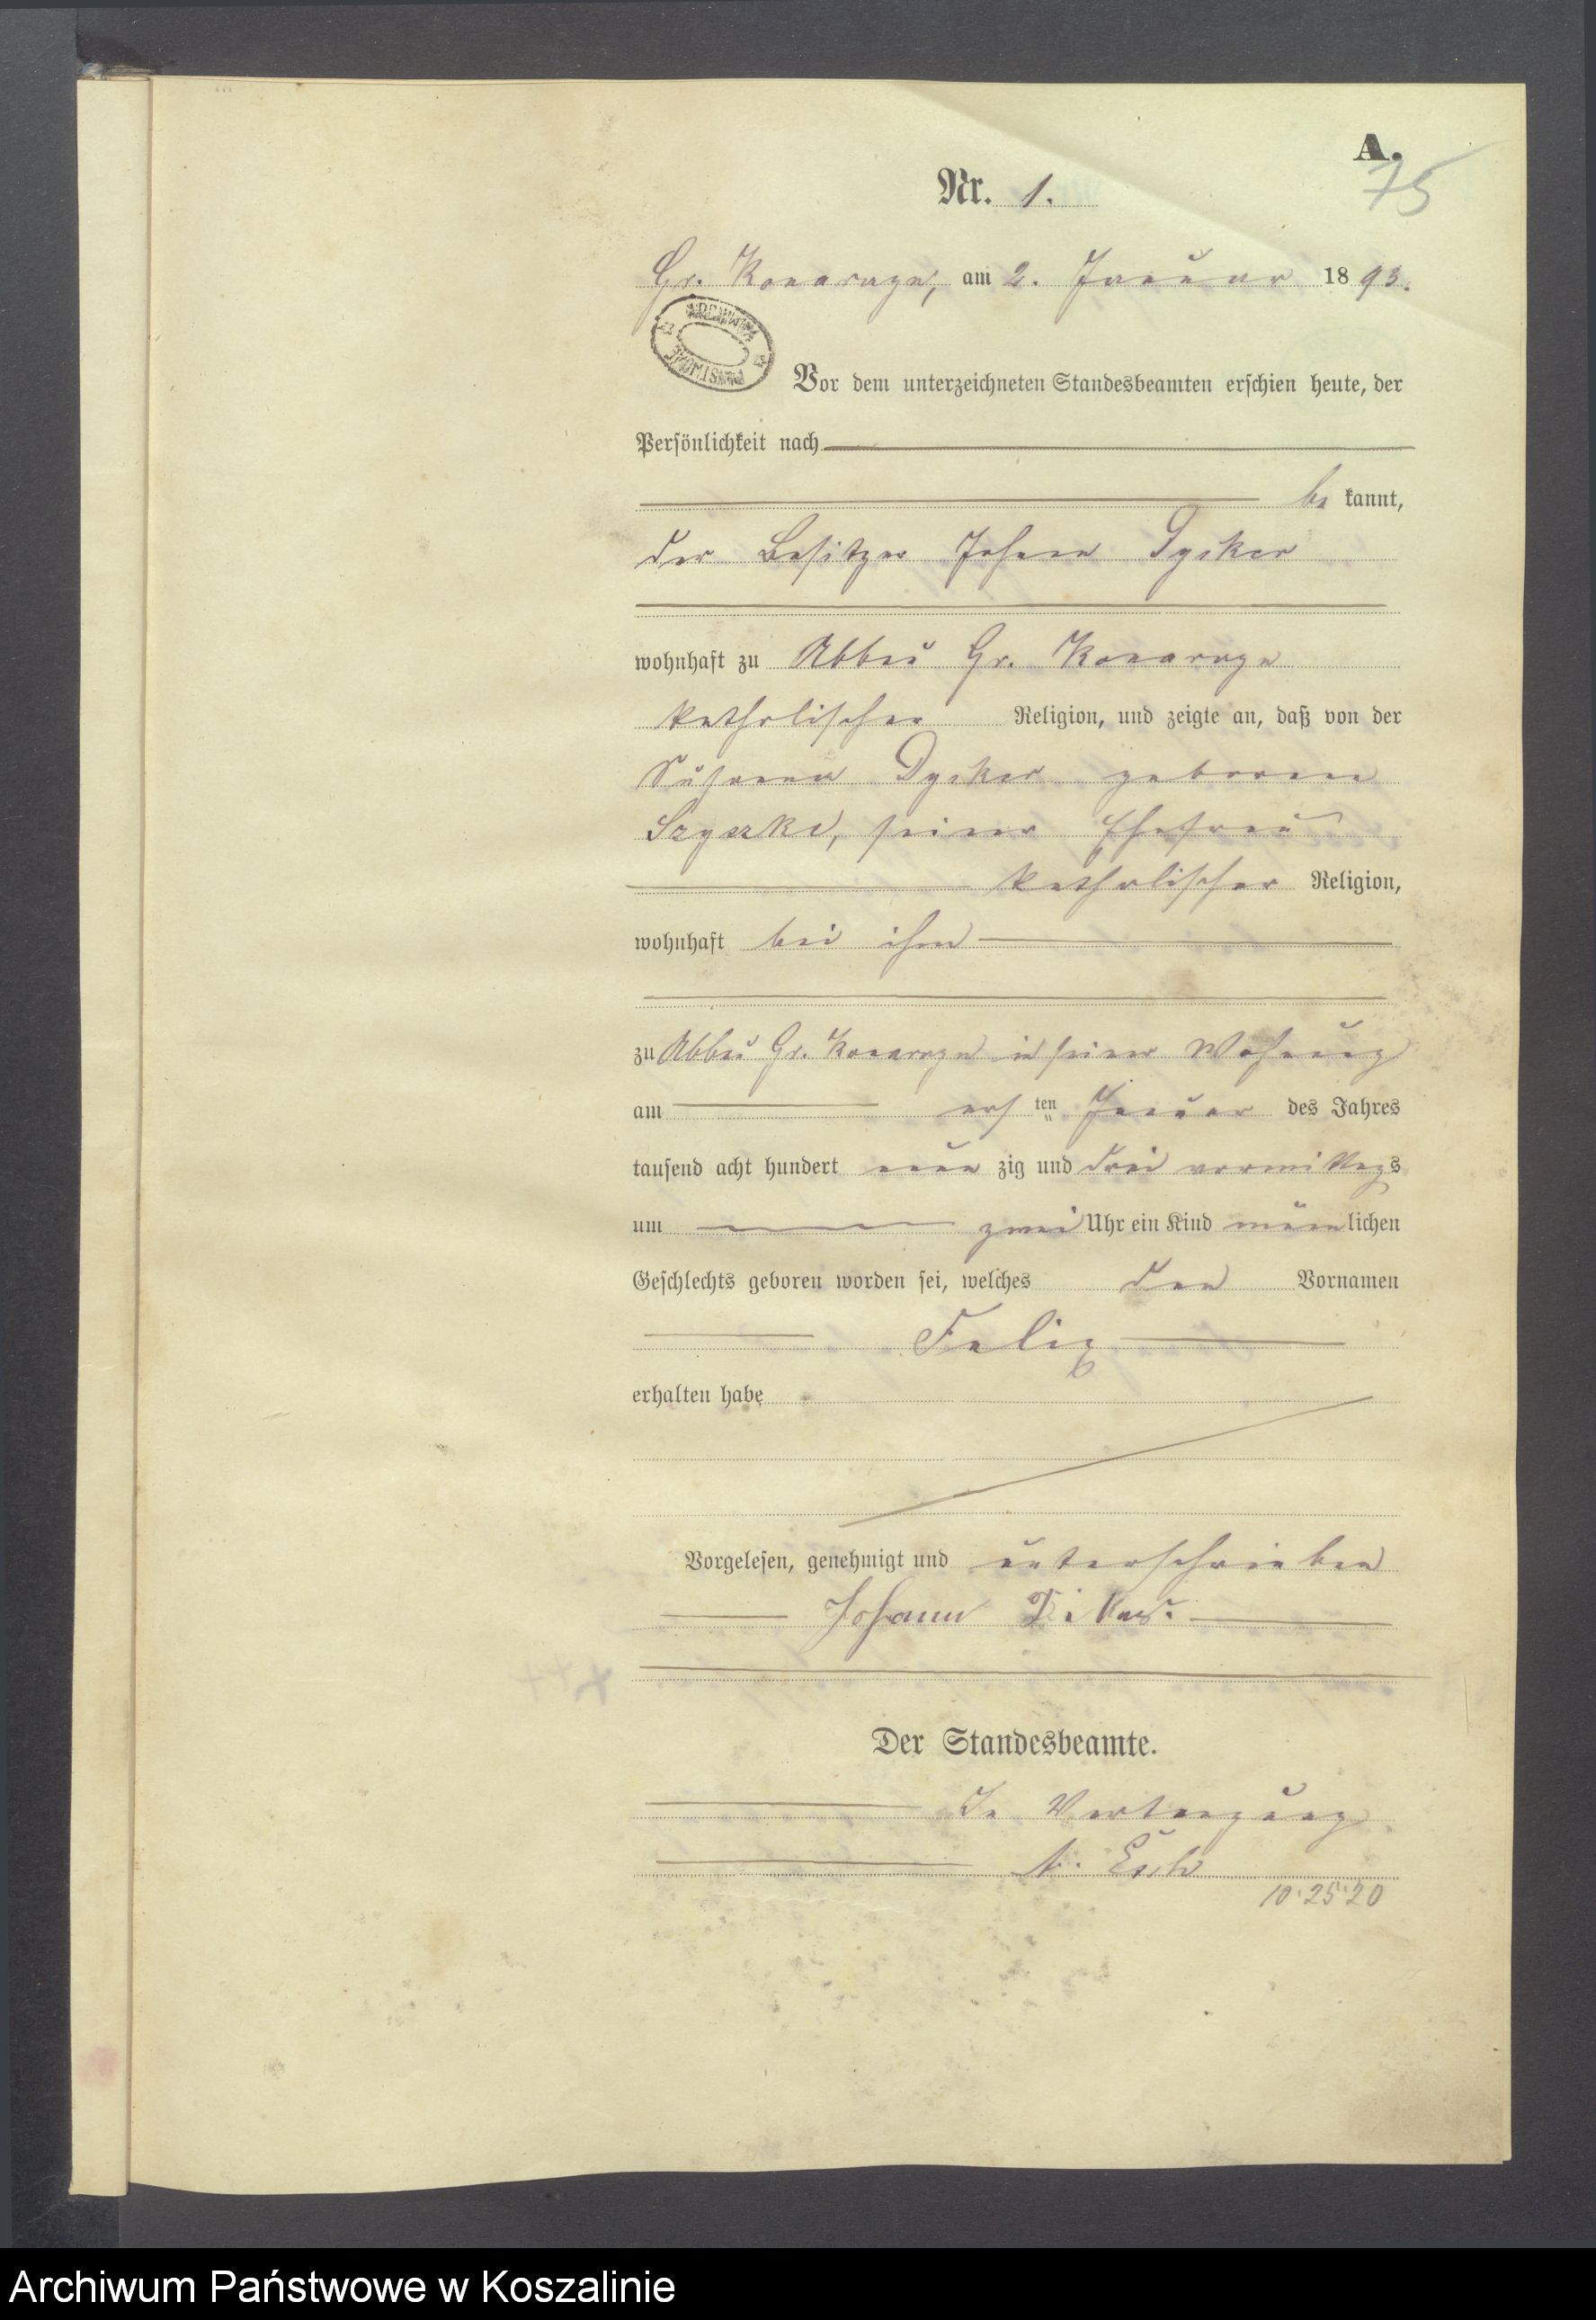 A.
75
Nr. 1.
Gr. Konarzyn, am 2. Januar 1893.
ARCHIWUM
PAŃSTWOWE
Vor dem unterzeichneten Standesbeamten erschien heute, der
Persönlichkeit nach
be kannt,
der Besitzer Johann Dysker
wohnhaft zu Abbau Gr. Konarzyn
katholischer Religion, und zeigte an, daß von der
Dysker geborene
Szyszka, seiner Ehefrau
katholischer Religion,
wohnhaft bei ihm
zu Abbau Gr. Konarzyn in seiner Wohnung
am ers ten Januar des Jahres
tausend acht hundert neun zig und drei vormittags
um zwei Uhr ein Kind männlichen
Geschlechts geboren worden sei, welches den Vornamen
Felix
erhalten habe
Vorgelesen, genehmigt und unterschrieben
Johann
Der Standesbeamte.
In Vertretung
10.25.20
Archiwum Państwowe w Koszalinie